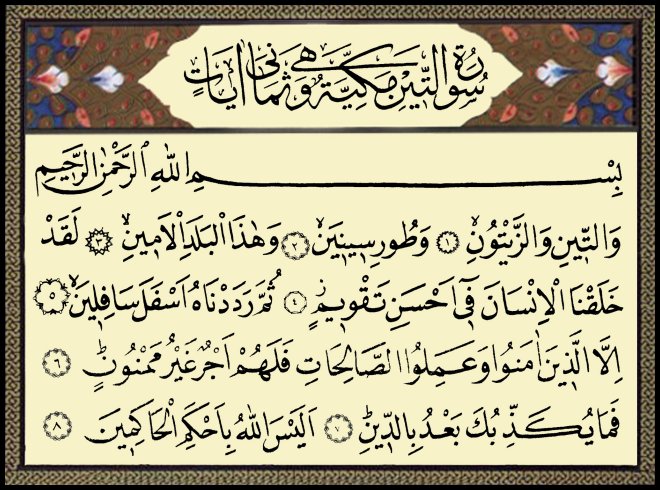 سُورَةُ التِّينِ مَكِّيَّةٌ وَهِيَ ثَمَانِي اٰيَاتٍ
بِسْــــــــمِ اللّٰهِ الرَّحْمٰنِ الرَّحٖيمِ
وَالتّٖينِ وَالزَّيْتُونِۙ ﴿١﴾ وَطُورِ سٖينٖينَۙ ﴿٢﴾ وَهٰذَا الْبَلَدِ الْاَمٖينِۙ ﴿٣﴾ لَقَدْ
خَلَقْنَا الْاِنْسَانَ فٖٓي اَحْسَنِ تَقْوٖيمٍؗ ﴿٤﴾ ثُمَّ رَدَدْنَاهُ اَسْفَلَ سَافِلٖينَۙ ﴿٥﴾
اِلَّا الَّذٖينَ اٰمَنُوا وَعَمِلُوا الصَّالِحَاتِ فَلَهُمْ اَجْرٌ غَيْرُ مَمْنُونٍؕ ﴿٦﴾
فَمَا يُكَذِّبُكَ بَعْدُ بِالدّٖينِؕ ﴿٧﴾ اَلَيْسَ اللّٰهُ بِاَحْكَمِ الْحَاكِمٖينَ ﴿٨﴾